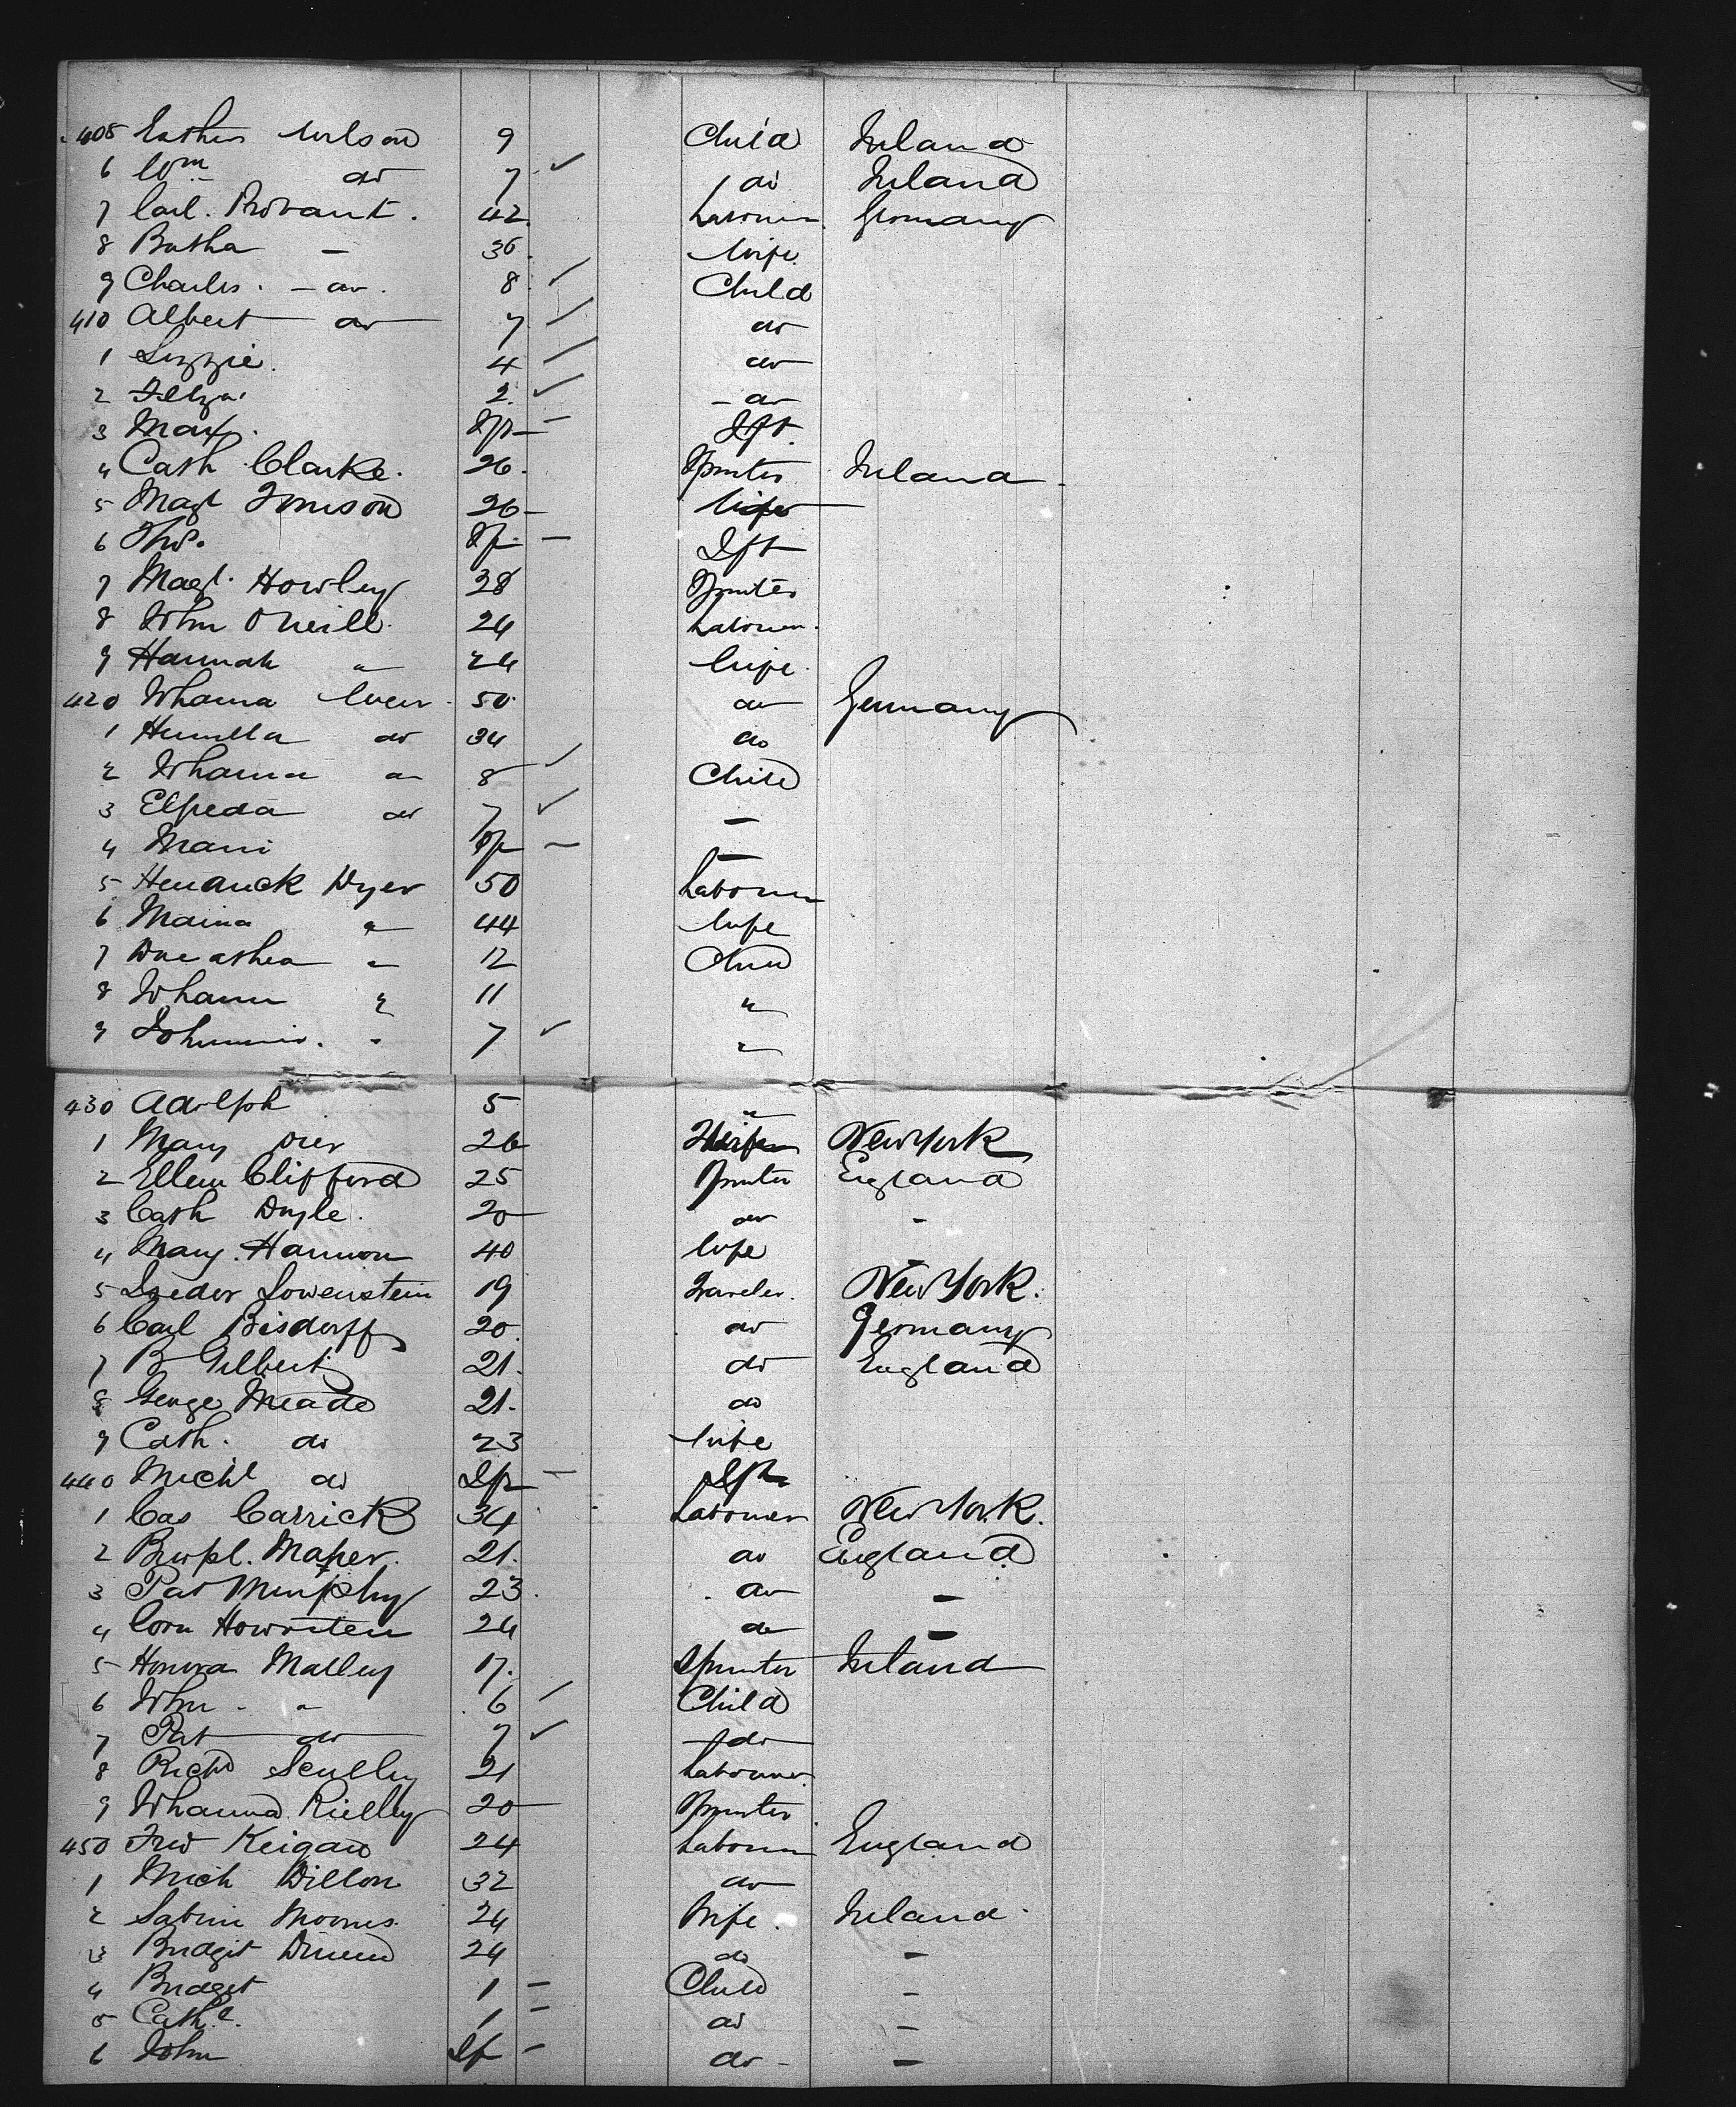 405 Esther Wilson 9 Child Ireland
6 Wm do 7 ✓ do Ireland
7 Carl. Provant. 42 Laborer Germany
8 Batha — 36 Wife
9 Charles. — do. 8 ✓ Child
410 Albert do 7 do
1 Lizzie. 4 do
2 2 ✓ — do
3 Max. Ift — Ift.
4 Cath Clarke. 26. Spinster Ireland
5 Magt 26 — Wife
6 Tho. — Ift
7 Magt. Howley 28 Spinster
8 John ONeill. 24 Laborer.
9 Hannah " 24 Wife.
420 Johanna 50. do Germany
1 do 34 do
2 Johanna do 8 ✓ Child
3 Elfreda do 7 ✓ —
4 Mari — —
5 Henrick Dyer 50 Laborer
6 " 44 Wife
7 " 12 Child
8 Johann " 11 "
9 7 ✓ "
430 Adolph 5 "
1 Mary Dier 26 New York
2 Ellen Clifford 25 Spinster England
3 Cath Doyle. 20 do —
4 Mary. Hannon 40 Wife —
5 Isedor Lowenstein 19 New York.
6 Carl Bisdorff 20 do Germany
7 B Gilbert 21. do England
8 George Meade 21. do
9 Cath. do 23 Wife
440 Michl do Ift — Ift
1 Cas Carrick 34 Laborer New York.
2 Maher. 21. do England
3 Pat Murphy 23. do —
4 Corn 24 do —
5 Honora Malley 17. Spinster Ireland
6 John. " 6 Child
7 Pat do 7 ✓ do
8 Richd Scully 21 Labourer.
9 Johanna Rielley 20 Spinster
450 Keigan 24 Laborer England
1 Mich Dillon 32 do
2 24 Wife. Ireland.
3 Bridget 24 do —
4 Bridget 1 — Child —
5 Cathe. 1 — do —
6 John If — do — —